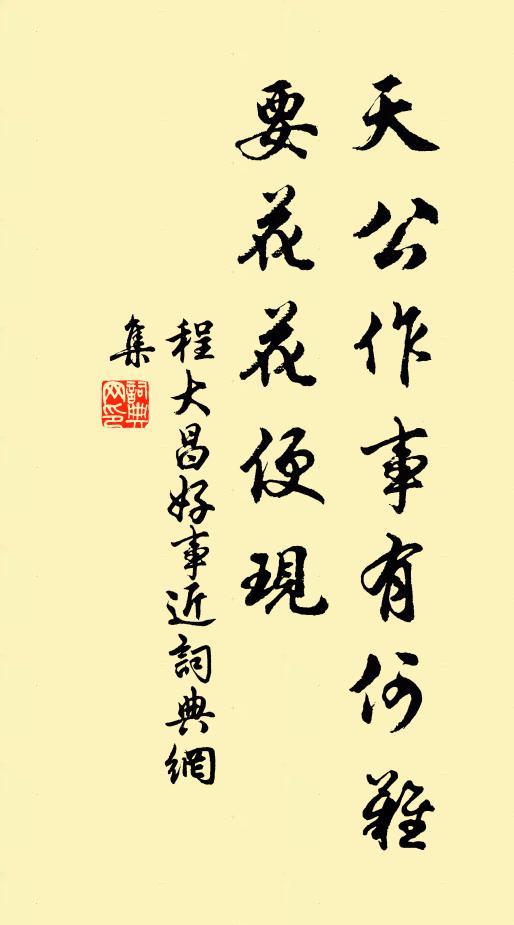 天公作事有何難
要花花便現
程大昌好事近詞典網
集
詞典網印